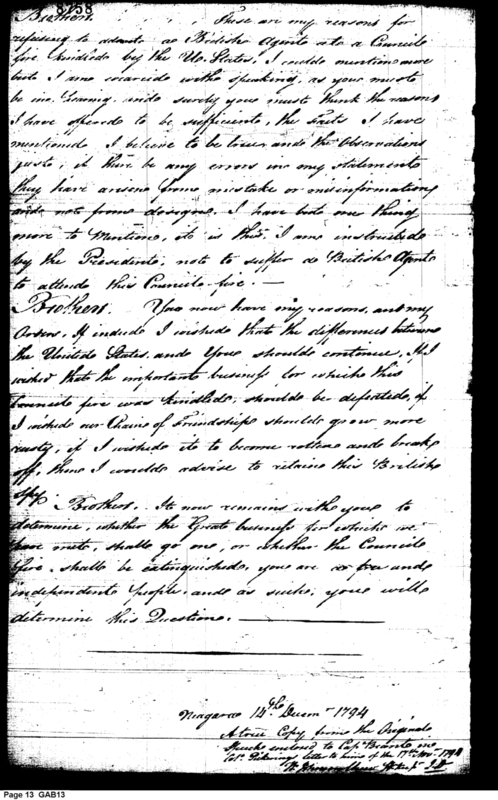 8458
Brothers. These are my reasons for
refusing to admit a British Agent at a Council
fire kindled by the Ud. States. I could mention more
but I am wearied with speaking, as you must
be in hearing, and surely you must think the reasons
I have offered to be sufficient, the facts I have
mentioned I believe to be true and the Observations
just, if there be any errors in my statement
they have arisen from mistake or misinformation
and not from design. I have but one thing
more to Mention, it is this. I am instructed
by the President, not to suffer a British Agent
to attend this Council fire. —
Brothers. You now have my reasons, and my
Orders. If indeed I wished that the differences between
the United States, and You should continue, If I
wished that the important business for which this
Council fire was kindled, should be defeated, if
I wished our Chain of Friendship should grow more
rusty, if I wished it to become rotten and break
off, then I would advise to retain this British
Spy.
Brothers. It now remains with you to
determine, whether the Great business for which we
have met, shall go on, or whether the Council
fire shall be extinguished, you are a free and
independent people, and as such, you will
determine this Question. —
Niagara 14th Decemr 1794
A true Copy from the Original
Speech enclosed to Capt Brant in
Col. Pickerings letter to him of the 17th Novr 1794
Page 13 GAB13